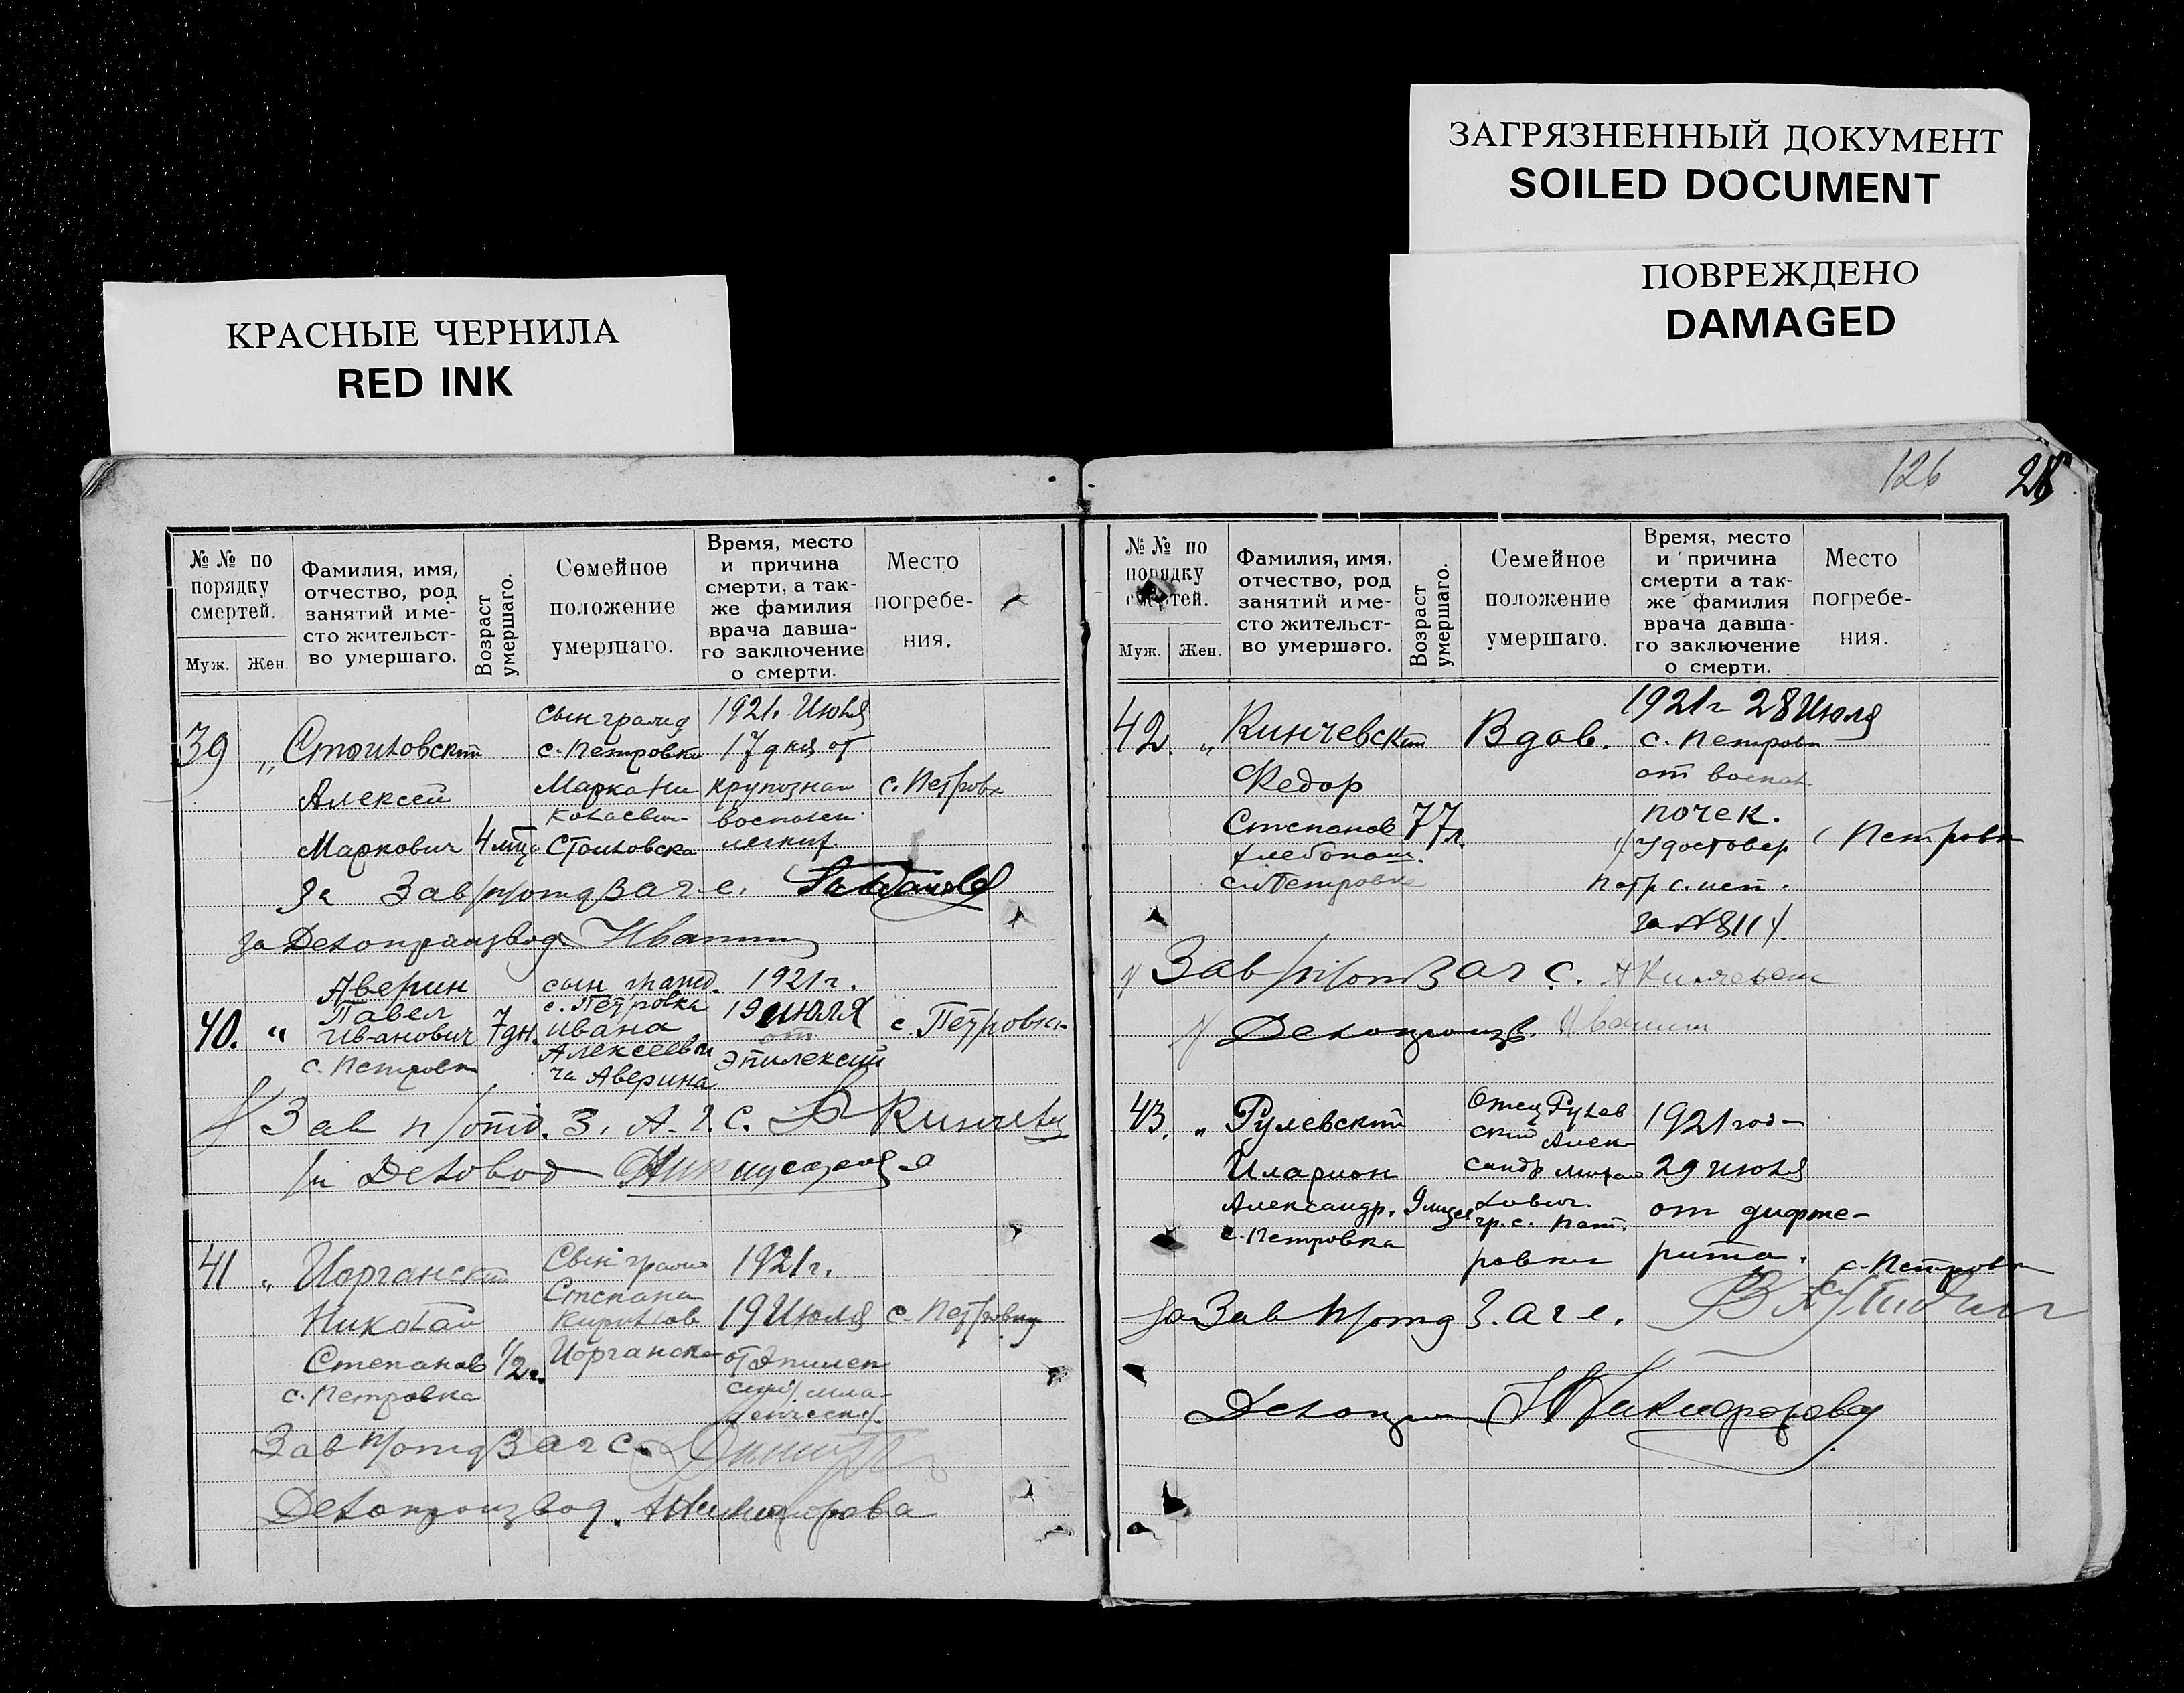 ЗАГРЯЗНЕННЫЙ ДОКУМЕНТ
SOILED DOCUMENT
ПОВРЕЖДЕНО
DAMAGED
КРАСНЫЕ ЧЕРНИЛА
RED INK
126
№ № по порядку смертей.
Муж. Жен.
Фамилия, имя, отчество, род занятий и место жительство умершаго.
Возраст умершаго.
Семейное положение умершаго.
Время, место и причина смерти, а также фамилия врача давшаго заключение о смерти.
Место погребения.
39 „ Стоиловский
Алексей
Маркович
4 мца
сын гражд
с. Петровки
Марка Ни
колаевич
Стоиловска
1921г. Июля
17 дня от
крупозная
воспален.
легких
с. Петровк
За Зав п/отд Загс.
за Делопроизвод Иванин
40. „ Аверин
Павел
Иванович
с. Петровк
7 дн.
сын гражд.
с. Петровка
Ивана
Алексееви
ча Аверина
1921 г.
19 июля
от
эпилексий
с. Петровки
Зав п/отд. З. А. Г. С.
Деловод
41 „ Иорганский
Николай
Степанов
с. Петровка
1/2 г.
Сын гражд
Степана
Кириллов
Иорганск
1921 г.
19 Июля
от эпилеп
сии/мла-
денческ/.
с. Петровка
Зав п/отд Загс.
Делопроизвод. Никифорова
№ № по порядку смертей.
Муж. Жен.
Фамилия, имя, отчество, род занятий и место жительство умершаго.
Возраст умершаго.
Семейное положение умершаго.
Время, место и причина смерти а также фамилия врача давшаго заключение о смерти.
Место погребения.
42. „ Кинчевский
Федор
Степанов
хлебопаш.
с. Петровка
77 л.
Вдов.
1921 г 28 Июля
с. Петровк
от воспал
почек.
удостовер
за № 811/.
с Петровк
Зав п/отд Загс.
Делопроизв. Иванин
43. „ Рулевский
Иларион
Александр.
с. Петровка
9 мцев
Отец Рулев
ский Алек
сандр Миха
лович.
гр. с. Пет.
ровки
1921 год
29 июля
от дифте-
рита.
с. Петровк
за Зав п/отд З.А.Г.С.
Делопр Никифорова